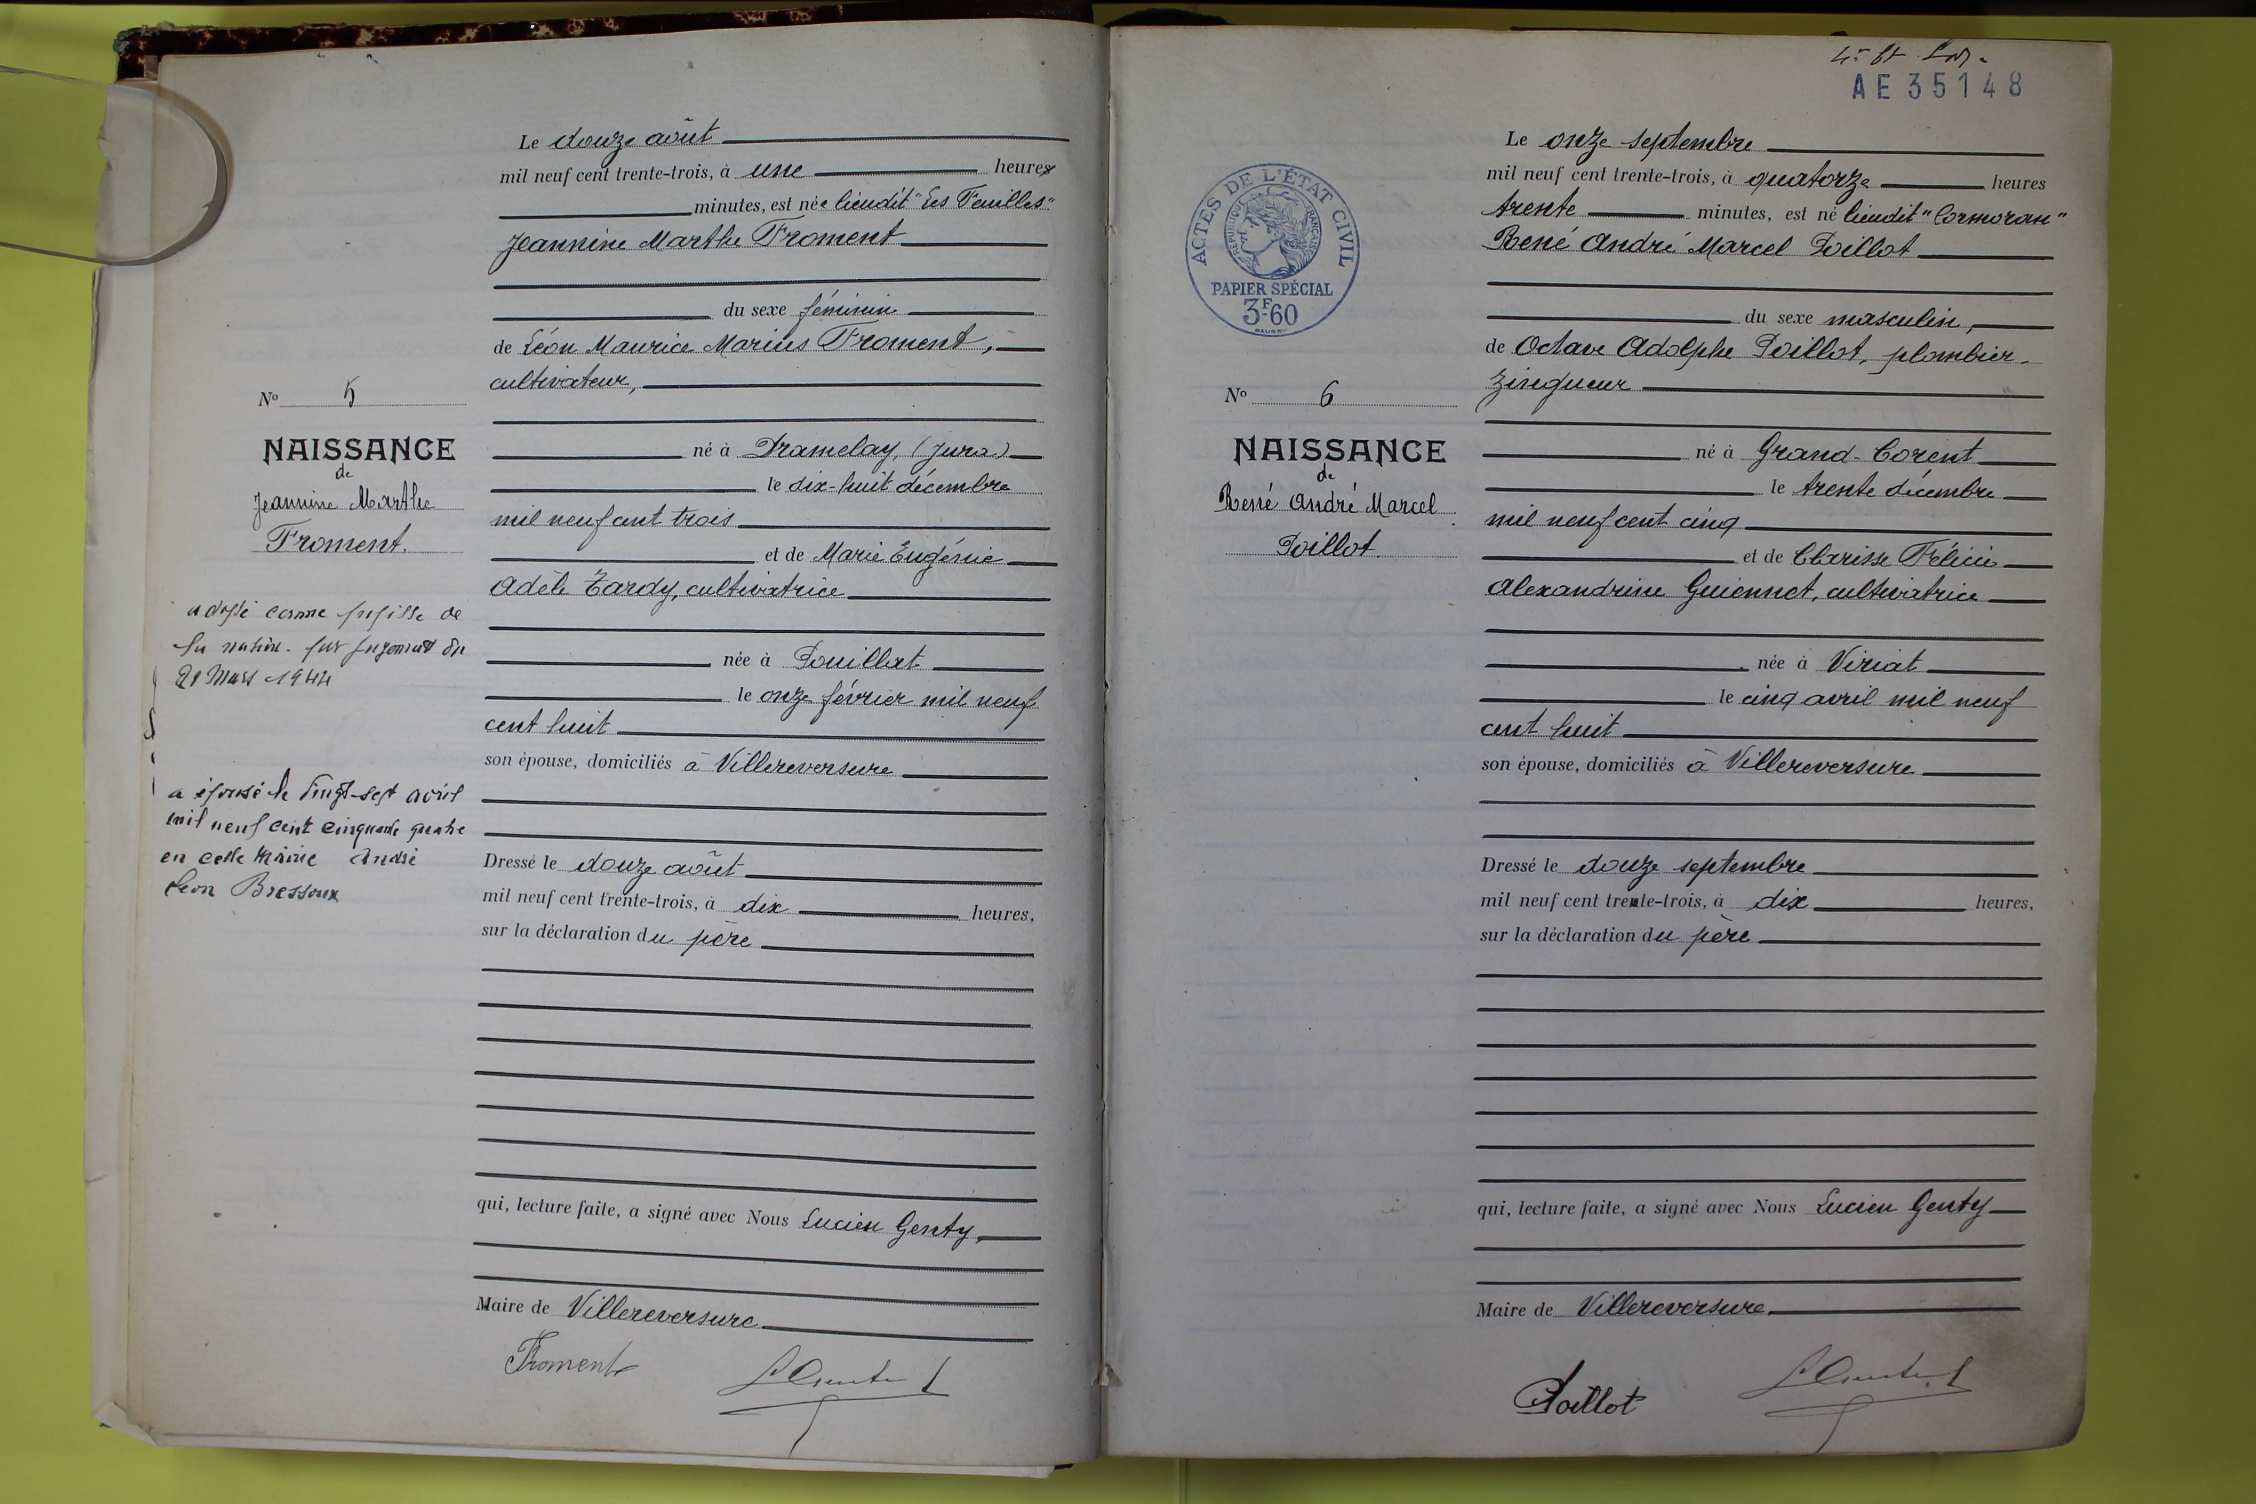 Le douze août
mil neuf cent trente-trois, à une heures
minutes, est née lieudit "Les Feuilles"
Jeannine Marthe Froment
du sexe féminin
de Léon Maurice Marius Froment,
cultivateur,
né à Dramelay, (Jura)
le dix-huit décembre
mil neuf cent trois
et de Marie Eugénie
Adèle Tardy, cultivatrice
née à Pouillat
le onze février mil neuf
cent huit
son épouse, domiciliés à Villereversure
Dressé le douze août
mil neuf cent trente-trois, à dix heures,
sur la déclaration du père
qui, lecture faite, a signé avec Nous Lucien Genty,
Maire de Villereversure
Froment
No 5
NAISSANCE
de
Jeannine Marthe
Froment.
adopté comme pupille de
la nation. par jugement du
21 Mars 1944
a épousé le vingt-sept avril
mil neuf cent cinquante quatre
en cette Mairie André
Léon Bressoux
AE 35148
ACTES DE L'ÉTAT CIVIL
RÉPUBLIQUE FRANÇAISE
PAPIER SPÉCIAL
3F.60
No 6
NAISSANCE
de
René André Marcel
Poillot.
Le onze septembre
mil neuf cent trente-trois, à quatorze heures
trente minutes, est né lieudit "Cormoran"
René André Marcel Poillot
du sexe masculin,
de Octave Adolphe Poillot, plombier-
zingueur
né à Grand-Corent
le trente décembre
mil neuf cent cinq
et de Clarisse Félicie
Alexandrine Guiennet, cultivatrice
née à Viriat
le cinq avril mil neuf
cent huit
son épouse, domiciliés à Villereversure
Dressé le douze septembre
mil neuf cent trente-trois, à dix heures,
sur la déclaration du père
qui, lecture faite, a signé avec Nous Lucien Genty
Maire de Villereversure
Poillot